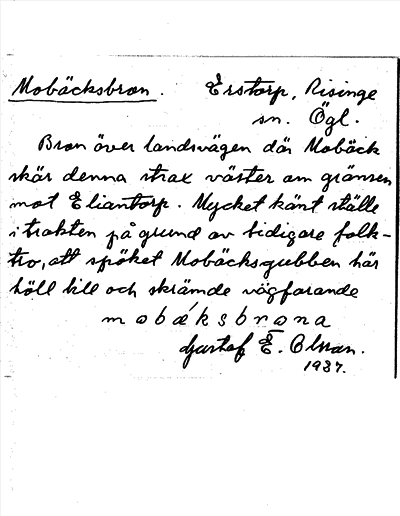 Mobäcksbron. Erstorp, Risinge
sn. Ögl.
Bron över landsvägen där Mobäck
skär denna strax väster om gränsen
mot Eliantorp. Mycket känt ställe
i trakten på grund av tidigare folk-
tro, att spöket Mobäcksgubben här
höll till och skrämde vägfarande
mobǽksbrona
Gustaf E. Olsson.
1937.